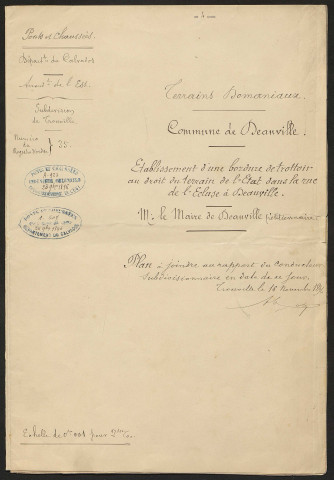 Ponts et Chaussées
Départt du Calvados
Arrondt de l'Est
Subdivision
de Trouville
Numéro
du
} 25
Terrains Domaniaux.
Commune de Deauville.
Etablissement d'une bordure de trottoir
au droit du terrain de l'Etat dans la rue
de l'Ecluse à Deauville.
M. le Maire de Deauville Pétitionnaire
Plan à joindre au rapport du Conducteur
Subdivisionnaire en date de ce jour.
Trouville le 16 Novembre
PONTS ET CHAUSSÉES
DÉPARTEMENT DU CALVADOS
Echelle de 0m.001 pour